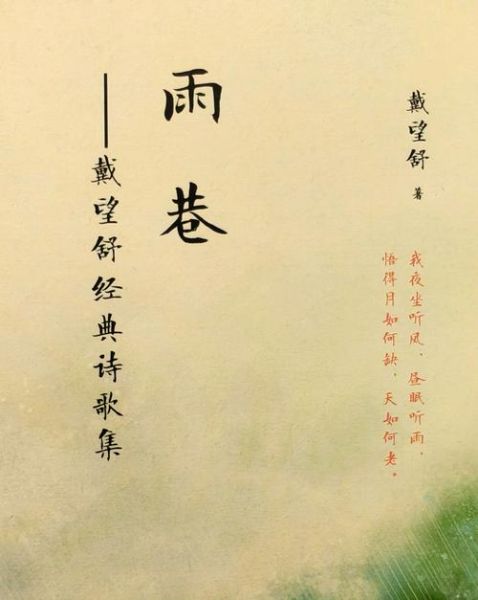 戴望舒 著
我夜坐听风、昼眠听雨,
悟得月如何缺,天如何老。
雨巷
——戴望舒经典诗歌集